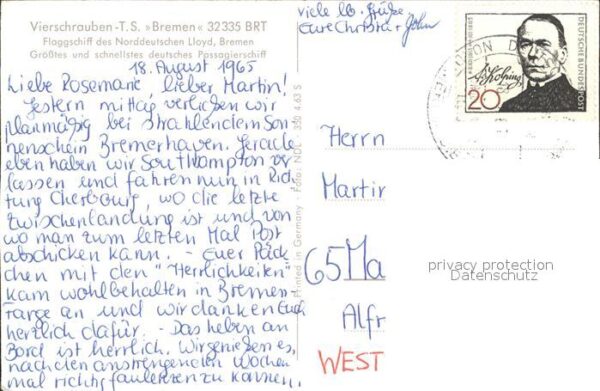 Vierschrauben-T.S. »Bremen« 32 335 BRT
Flaggschiff des Norddeutschen Lloyd, Bremen
Größtes und schnellstes deutsches Passagierschiff
18. August 1965
Liebe Rosemarie, lieber Martin!
Gestern mittag verließen wir
planmäßig bei strahlendem Son-
nenschein Bremerhaven. Gerade
eben haben wir Southampton ver-
lassen und fahren nun in Rich-
tung Cherbourg, wo die letzte
Zwischenlandung ist und von
wo man zum letzten Mal Post
abschicken kann. - Euer Päck
chen mit den "Herrlichkeiten"
kam wohlbehalten in Bremen-
an und wir danken Euch
herzlich dafür. - Das Leben an
Bord ist herrlich. Wir genießen es,
nach den anstrengenden Wochen
mal richtig faulenzen zu können.
Viele lb. Grüße
Eure Christa + John
Printed in Germany · Foto: NDL 350 4 63 S
DEUTSCHE BUNDESPOST
Kolping
20
Herrn
Martin
65 Ma
Alfr
WEST
privacy protection
Datenschutz